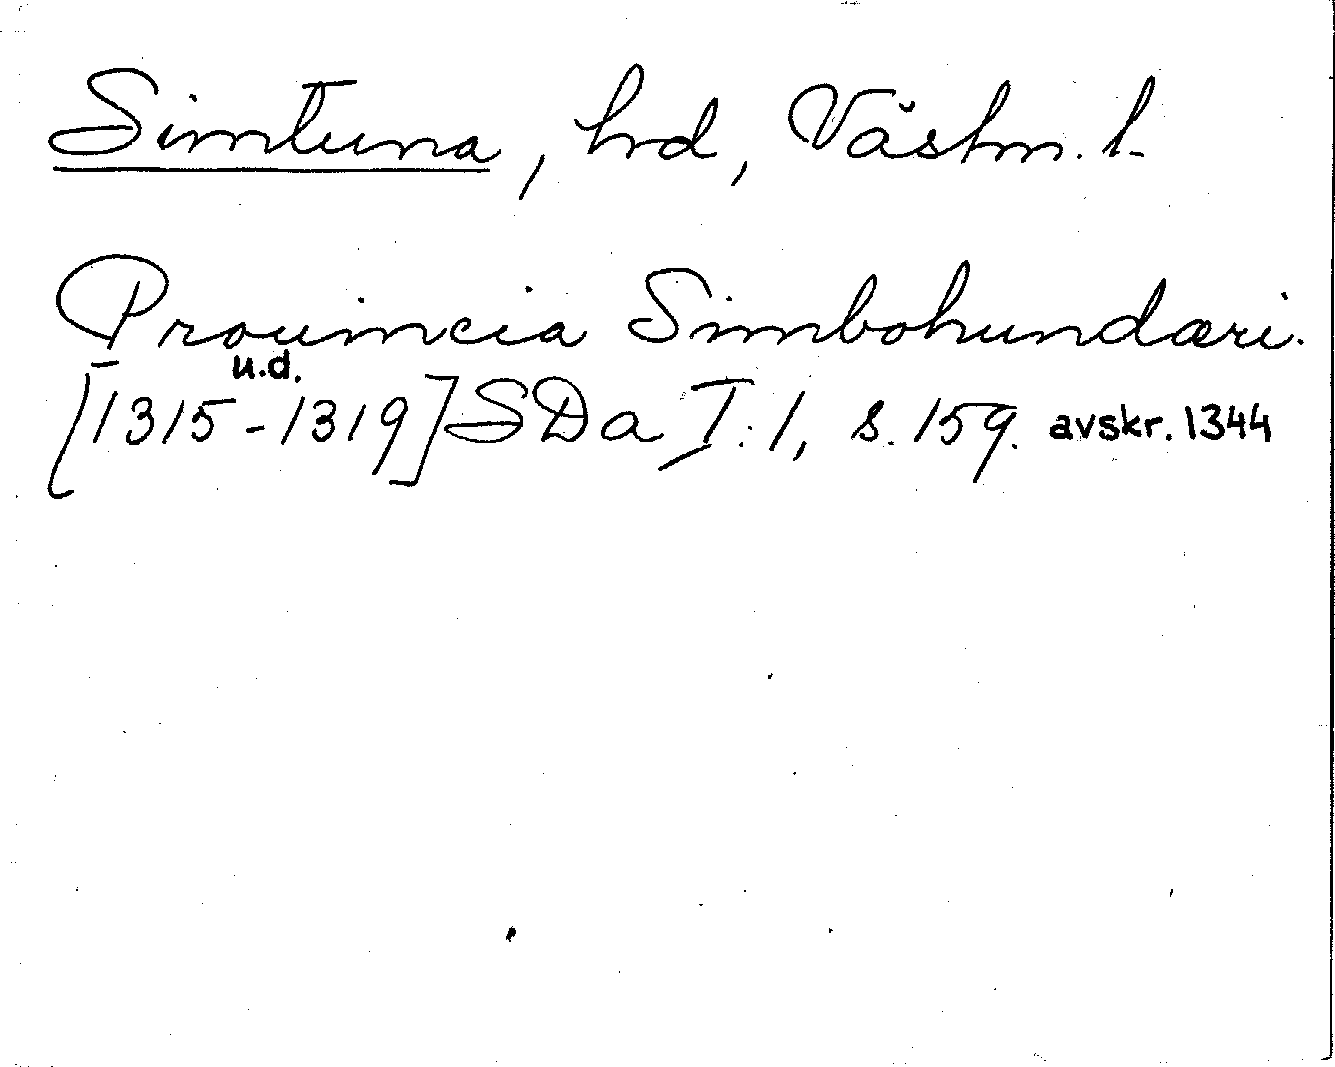 Simtuna, hd, Västm. l.
Prouincia Simbohundæri.
u.d.
[1315-1319] SDa I:1, s. 159. avskr. 1344